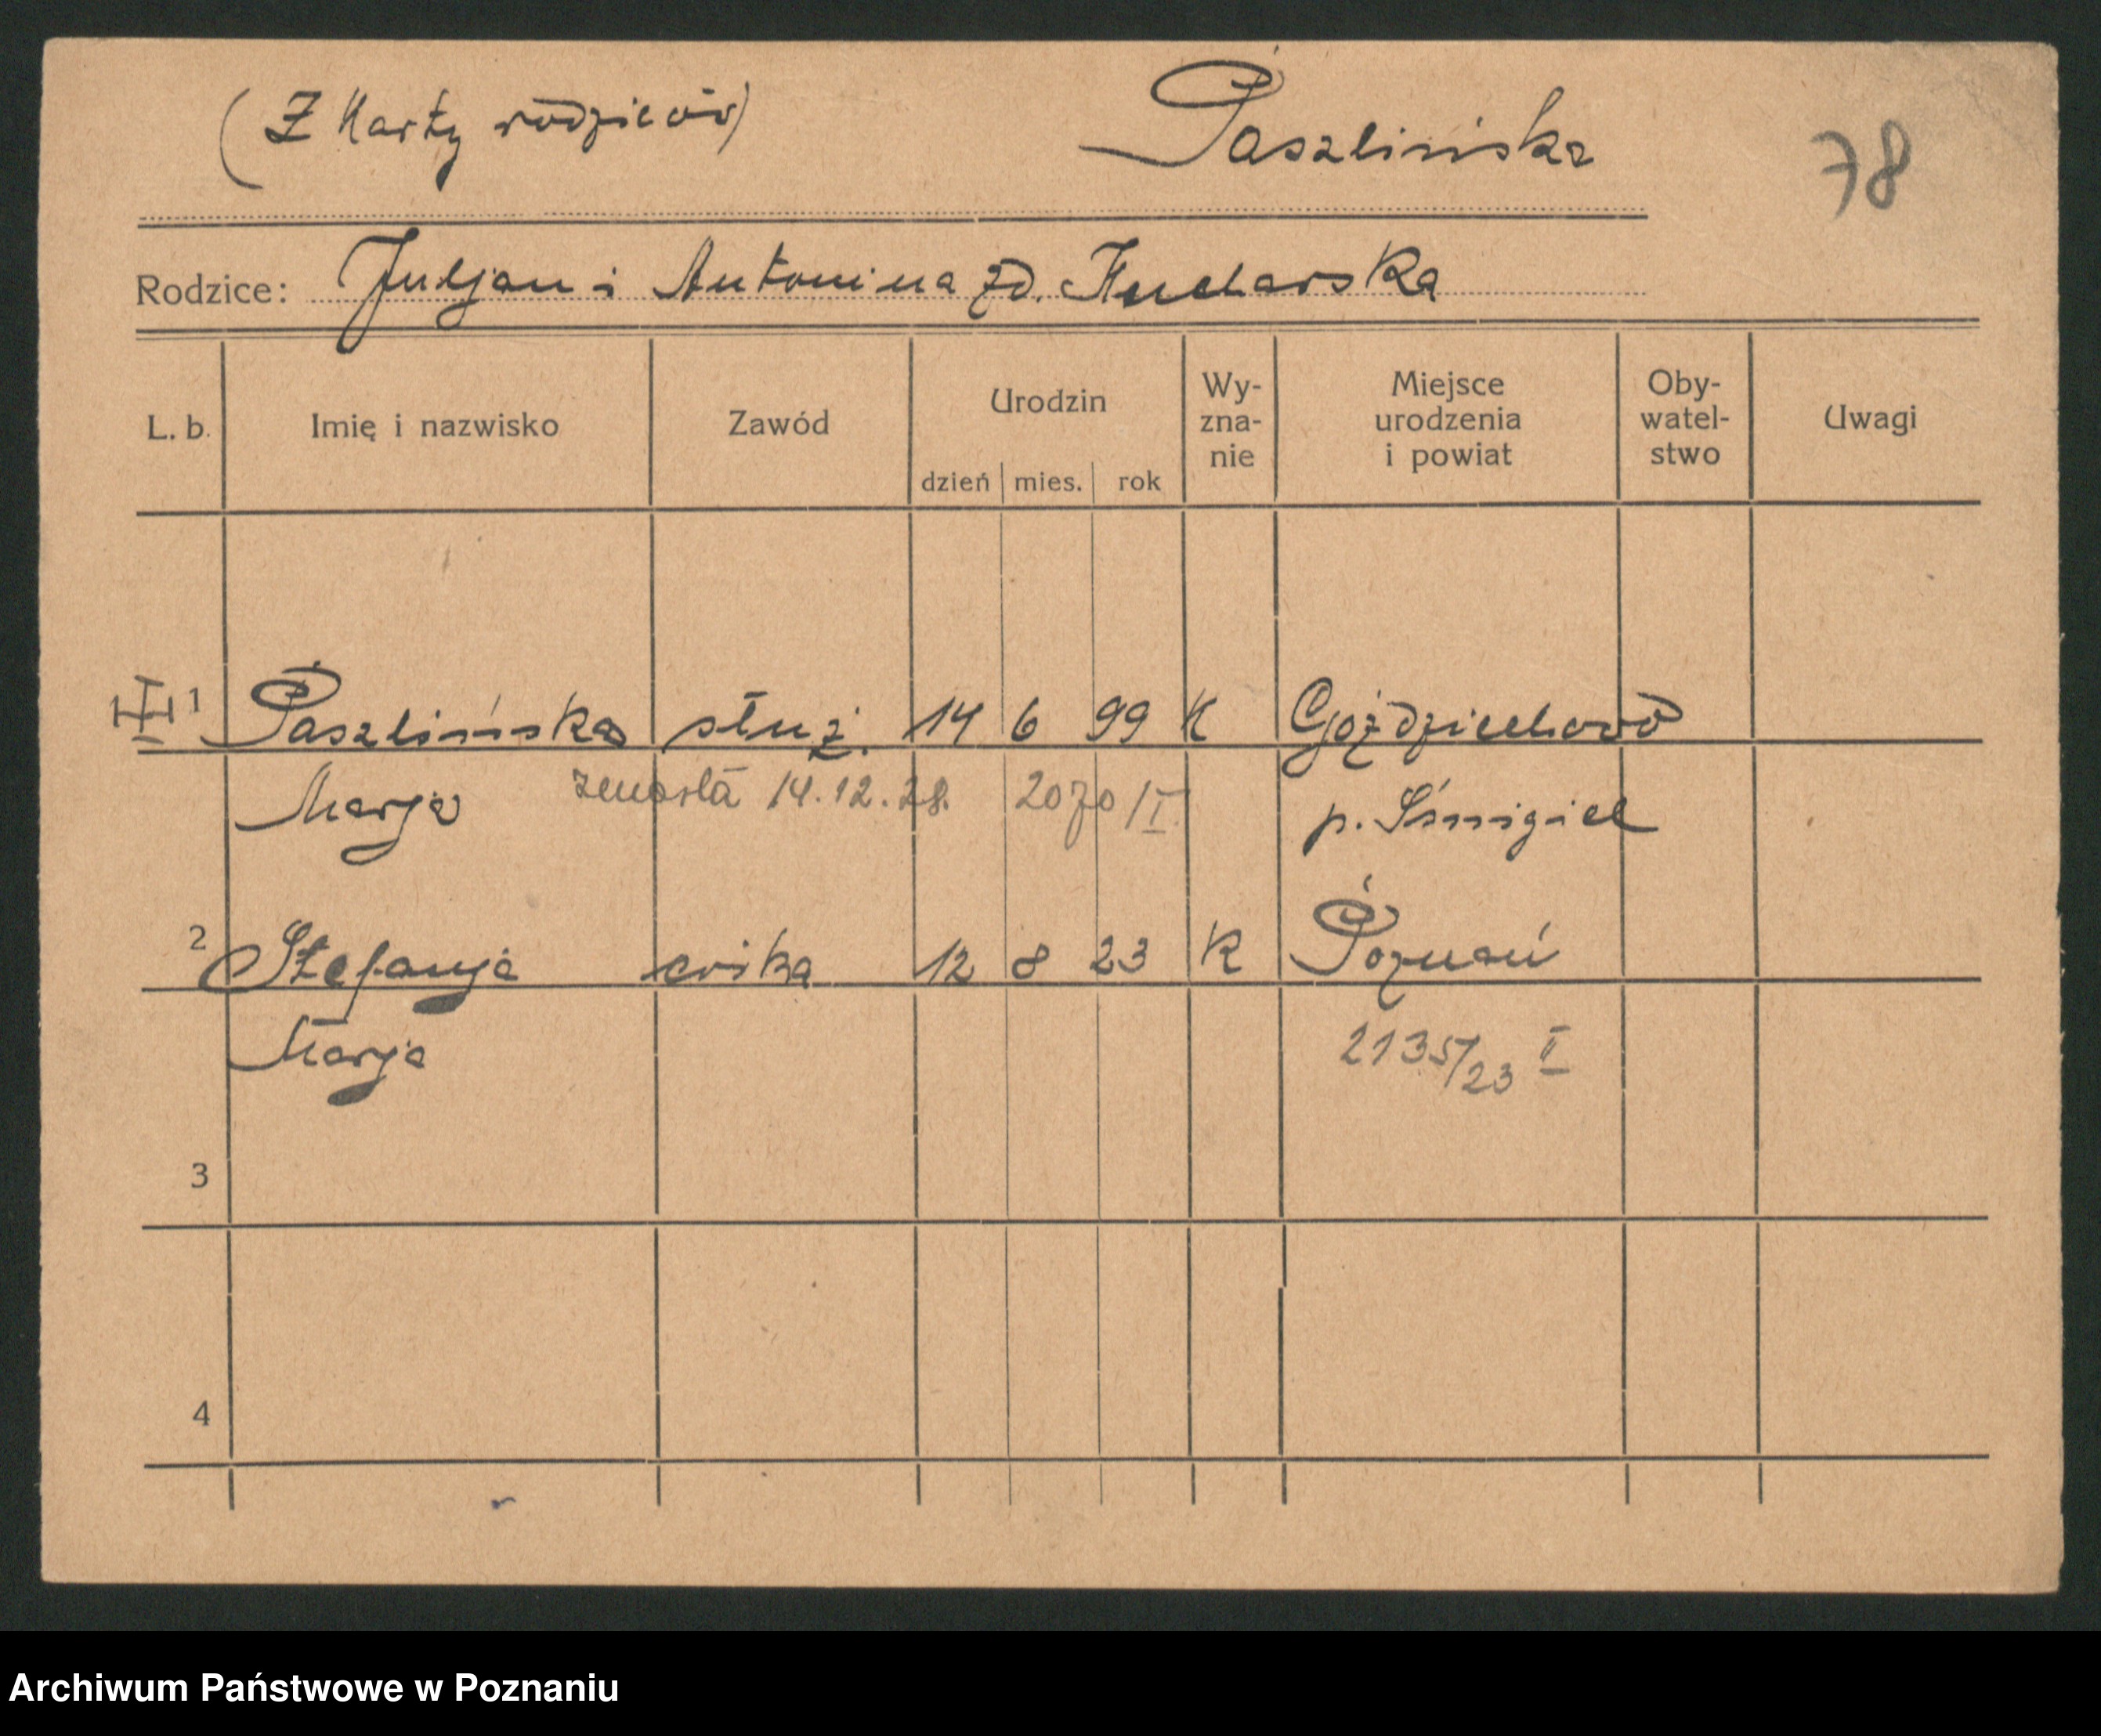 (Z Karty rodziców) Paszlińska 78
Rodzice: Juljan i Antonina zd. Kucharska
L. b. Imię i nazwisko Zawód Urodzin dzień mies. rok Wy-zna-nie Miejsce urodzenia i powiat Oby-watel-stwo Uwagi
1 Paszlińska służ. 14 6 99 K Goździchowo
Marja zmarła 14.12.28. 2070/I p. Śmigiel
2 Stefanja córka 12 8 23 K Poznań
Marja 2135/23 II
3
4
Archiwum Państwowe w Poznaniu